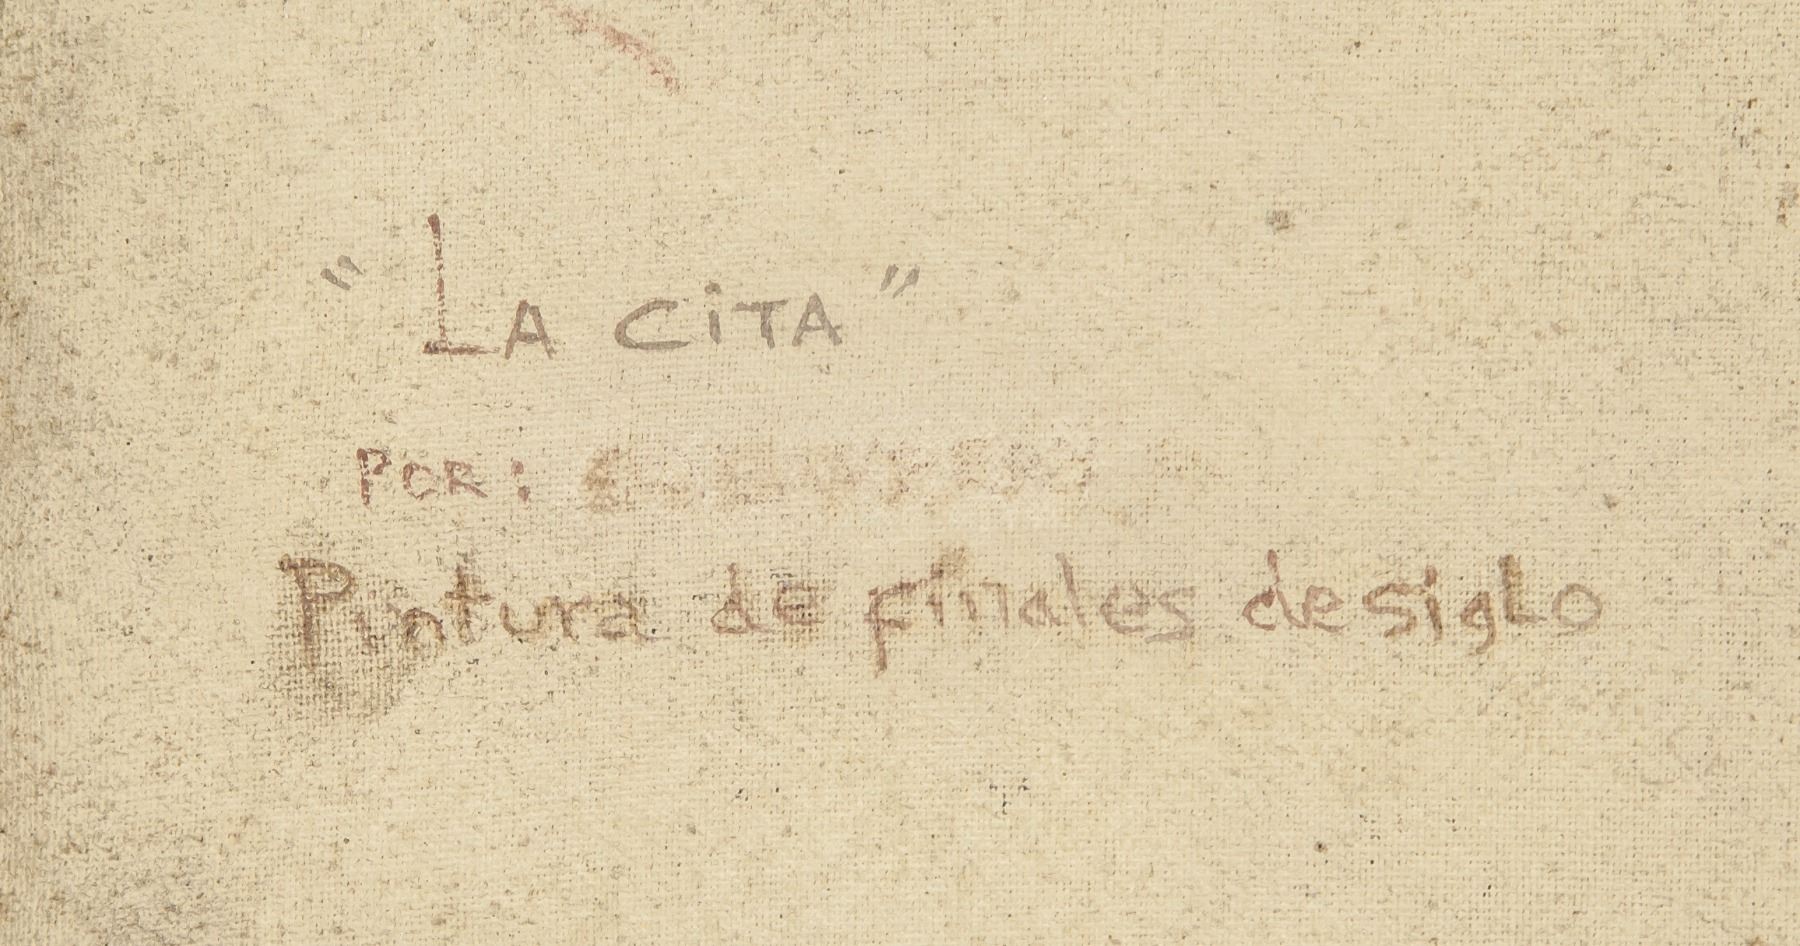 "LA CiTA"
POR:
Pintura de finales de siglo